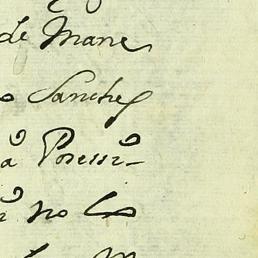 de Mane
o Sanchez
a Posessi-
no los